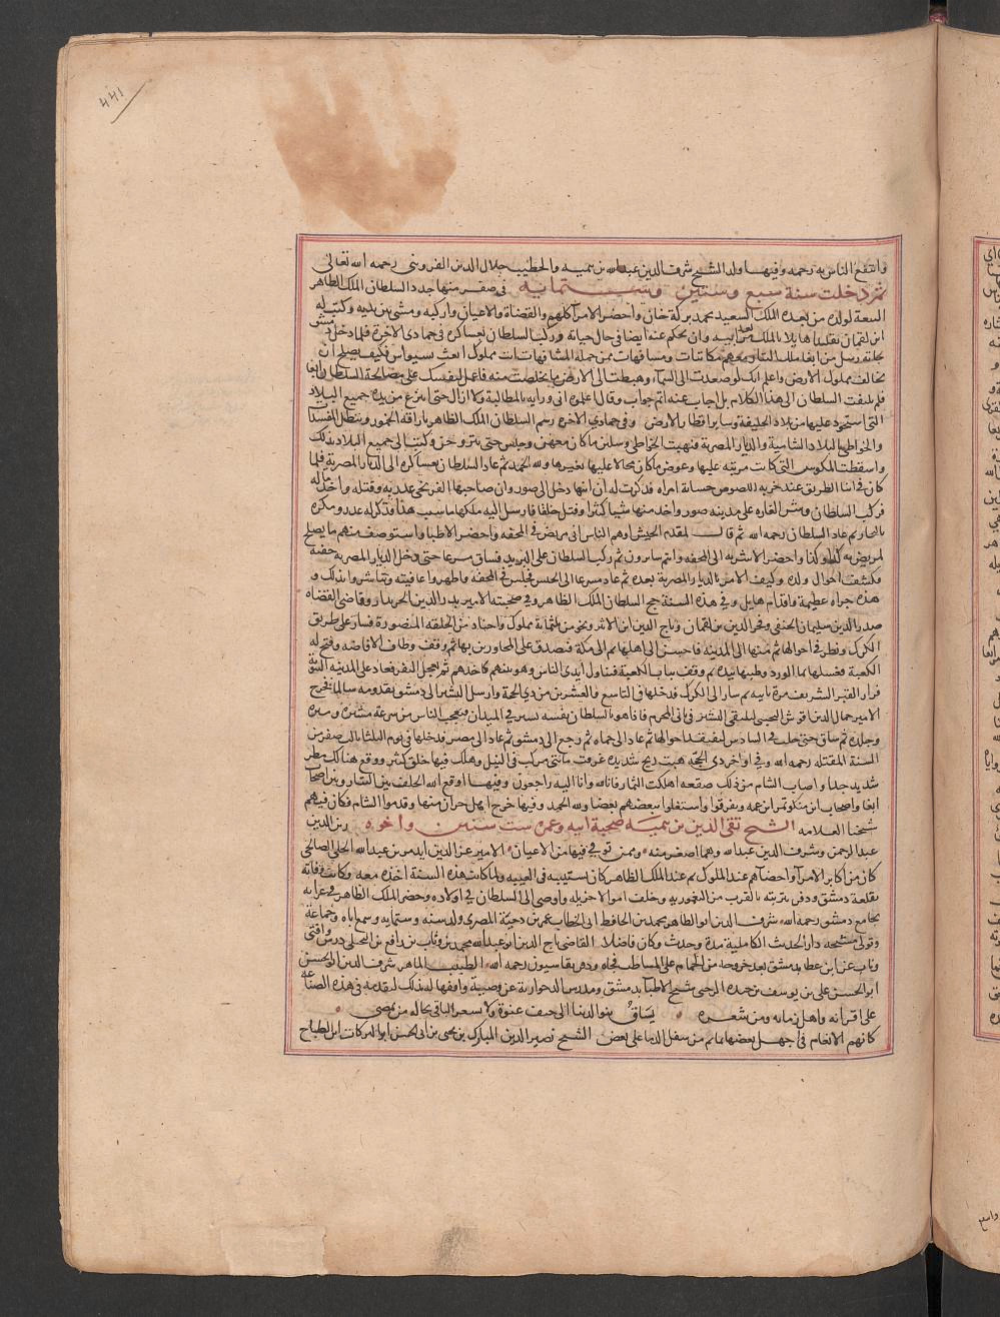 ٤٤١
وانتفع الناس به رحمه وفيها ولد الشيخ شرف الدين عبد الله بن تيميه والخطيب جلال الدين القزوينى رحمه الله تعالى
ثم دخلت سنة سبع وستين وستمايه فى صفر منها جدد السلطان الملك الظاهر
البيعة لولده من بعده الملك السعيد محمد بركة خان واحضر الامرآ كلهم والقضاة والاعيان واركبه ومشى بين يديه وكتب له
ابن لقمان تقليدا هايلا بالملك من بعد ابيه وان يحكم عنه ايضا فى حال حياته وركب السلطان بعساكره فى جمادى الاخرة فلما دخل دمشق
جاءته رسل من ابغا ملك التتار معهم مكاتبات ومشافهات فمن جملة المشافهات انت مملوك ابعت بسيواس فكيف يصلح ان
تخالف مملوك الارض واعلم انك لو صعدت الى السمآء وهبطت الى الارض ما تخلصت منه فاعمل لنفسك على مصالحة السلطان ابغا
فلم يلتفت السلطان الى هذا الكلام بل اجاب عنه اتم جواب وقال اعلموه انى ورايه بالمطالبة ولا ازال حتى انتزع من يده جميع البلاد
التى استحوذ عليها من بلاد الخليفة وساير اقطار الارض وفى جمادى الاخره رسم السلطان الملك الظاهر باراقه الخمور وتبطيل المفسدات
والخواطى بالبلاد الشامية والديار المصرية فنهبت الخواطى وسلبن ما كان معهن وحبسن حتى يتزوجن وكتب الى جميع البلاد بذلك
واسقطت المكوس التى كانت مرتبه عليها وعوض ما كان محالا عليها بغيرها ولله الحمد ثم عاد السلطان بعساكره الى الديار المصرية فلما
كان فى اثنا الطريق عند خربه اللصوص امراه فذكرت له ان ابنها دخل الى صور وان صاحبها الفرنجى غدر به وقتله واخذ ماله
فركب السلطان وشن الغاره على مدينه صور واخذ منها شيا كثيرا وقتل خلقا فارسل اليه ملكها ما سبب هذا فذكر له غدره ومكره
بالتجار ثم عاد السلطان رحمه الله ثم قال لمقدم الجيش اوهم الناس انى مريض فى المحفه واحضر الاطبا واستوصف منهم ما يصلح
لمريض به كذا وكذا واحضر الاشربه الى المحفه وانتم سايرون ثم ركب السلطان على البريد فساق مسرعا حتى دخل الديار المصريه خفيه
فكشف احوال ولده وكيف الامر بالديار المصرية بعده ثم عاد مسرعا الى الجيش فجلس فى المحفه واظهروا عافيته وتباشروا بذلك و
هذه جراه عظيمة واقدام هايل وفى هذه السنة حج السلطان الملك الظاهر وفى صحبته الامير بدر الدين الخزندار وقاضى القضاه
صدر الدين سليمان الحنفى وفخر الدين بن لقمان وتاج الدين ابن الاثير ونحو من ثلثمائة مملوك واجناد من الحلقه المنصورة فسار على طريق
الكرك ونظر فى احوالها ثم منها الى المدينه فاحسن الى اهلها ثم الى مكة فتصدق على المجاورين بها ثم وقف وطاف الافاضه وفتح له
الكعبة فغسلها بما الورد وطيبها بيده ثم وقف بباب الكعبة فتناول ايدى الناس وهو بينهم كاحدهم ثم تعجل النفر فعاد على المدينه النبوية
فزار القبر الشريف مرة ثانيه ثم سار الى الكرك فدخلها فى التاسع والعشرين من ذى الحجة وارسل البشير الى دمشق بقدومه سالما فخرج
الامير جمال الدين اقوش النجيبى ليتلقى البشير فى ثانى المحرم فاذا هو بالسلطان بنفسه يسير فى الميدان فتعجب الناس من سرعة مسيره وصبره
وجلده ثم ساق حتى دخل حلب فى السادس ليتفقد احوالها ثم عاد الى حماه ثم رجع الى دمشق ثم عاد الى مصر فدخلها فى يوم الثلثا ثالث صفر من
السنة المقبله رحمه الله وفى اواخر ذى الحجة هبت ريح شديده غرقت مائتى مركب فى النيل وهلك فيها خلق كثير ووقع هناك مطر
شديد جدا واصاب الشام من ذلك صقعه اهلكت الثمار فانا لله وانا اليه راجعون وفيها اوقع الله الخلف بين التتار وبين اصحاب
ابغا واصحاب ابن منكوتمر ابن عمه وتفرقوا واشتغلوا ببعضهم بعضا ولله الحمد وفيها خرج اهل حران منها وقدموا الشام فكان فيهم
شيخنا العلامه الشيخ تقى الدين بن تيميه صحبة ابيه وعمره ست سنين واخوه زين الدين
عبد الرحمن وشرف الدين عبد الله وهما اصغر منه وممن توفى فيها من الاعيان الامير عز الدين ايدمر بن عبد الله الحلى الصالحى
كان من اكابر الامرآ واحضاهم عند الملوك ثم عند الملك الظاهر كان استنيبه فى الغيبه ولما كانت هذه السنة اخذه معه وكانت وفاته
بقلعة دمشق ودفن بتربته بالقرب من اليغموريه وخلف اموالا جزيله واوصى الى السلطان فى اولاده وحضر الملك الظاهر فى عزايه
بجامع دمشق رحمه الله شرف الدين ابو الطاهر محمد بن الحافظ ابى الخطاب عمر بن دحية المصرى ولد سنه وستمايه وسمع اباه وجماعة
وتولى مشيخه دار الحديث الكاملية مدة وحدث وكان فاضلا القاضى تاج الدين ابو عبد الله محمد بن وثاب بن رافع بن البجلى درس وافتى
وناب عن ابن عطا بدمشق بعد خروجه من الحمام على المساطب فجاه ودفن بقاسيون رحمه الله الطبيب الماهر شرف الدين ابو الحسن
ابو الحسن على بن يوسف بن حيدره الرحبى شيخ الاطبا بدمشق ومدرس الدخوارية عن وصية واقفها له بذلك لتقدمه فى هذه الصناعه
على اقرانه واهل زمانه ومن شعره يساق بنو الدنيا الى حتف عنوة ولا يشعر الباقى بحاله من يمضى
كانهم الانعام فى جهل بعضها بما تم من سفك الدما على بعض الشيخ نصير الدين المبارك بن يحيى بن ابى الحسن ابو البركات ابن الطباخ